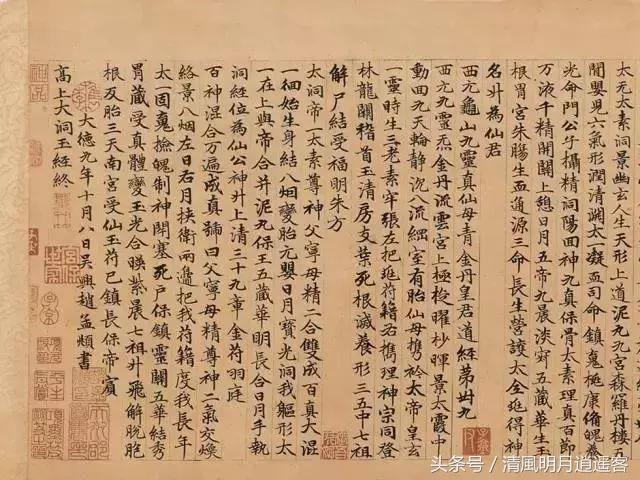 上道泥丸九宮森羅丹樓五
間嬰兒六氣形潤清淵太一凝血司命鎮嵬極康脩魄養
光命門公子攝精洞陽回神九真保骨太素理真百節
万液千精開關上憩日月五帝九晨淡穿五藏華生玉
根胃宮朱腸生血通源三命長生營護太全延得神
名升為仙君
西元龜山九靈真仙母青金丹皇君道經第卅九
西元九靈炁金丹流雲宮上極梭曜杪暉景太霞中
動回九天輪靜沉八流細室有胎仙母攜衿太帝皇玄
一靈時生三老素牢張左把延符籍右攜理神宗同登
林龍關稽首玉清房支葉死根滅養形三五中七祖
解尸結受福明朱方
太洞帝一太素尊神父寧母精二合雙成百真大混
一徊始生身結八烟變胎元嬰日月寶光洞我軀形太
一在上與帝合并泥丸保王五藏華明長合日月手執
洞經位為仙公神升上清三十九章金符羽庭
百神混合万遍成真號曰父寧母精尊神二氣交煥
絡景八烟左日右月挾衛兩邊把我符籍度我長年
太一固鬼檢魄制神開塞死戶保鎮靈關五華結秀
胃藏受真體變玉光合暎紫晨七祖升飛解脫胞
根反胎三天南宮受仙玉符已鎮長保帝賓
高上大洞玉經終
大德九年十月八日吳興趙孟頫書
头条号 / 清風明月道遥客